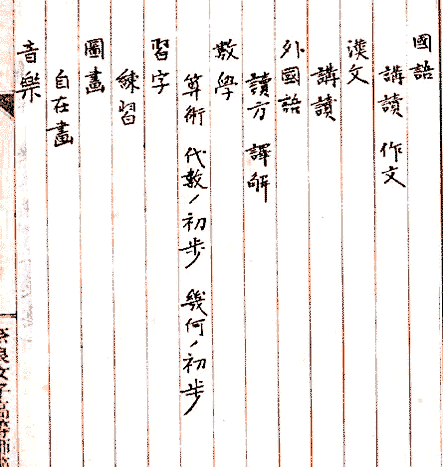 國語
講讀 作文
漢文
講讀
外國語
讀方 譯解
數學
算術 代數ノ初步 幾何ノ初步
習字
練習
圖畫
自在畫
音樂
奈良女子高等師範